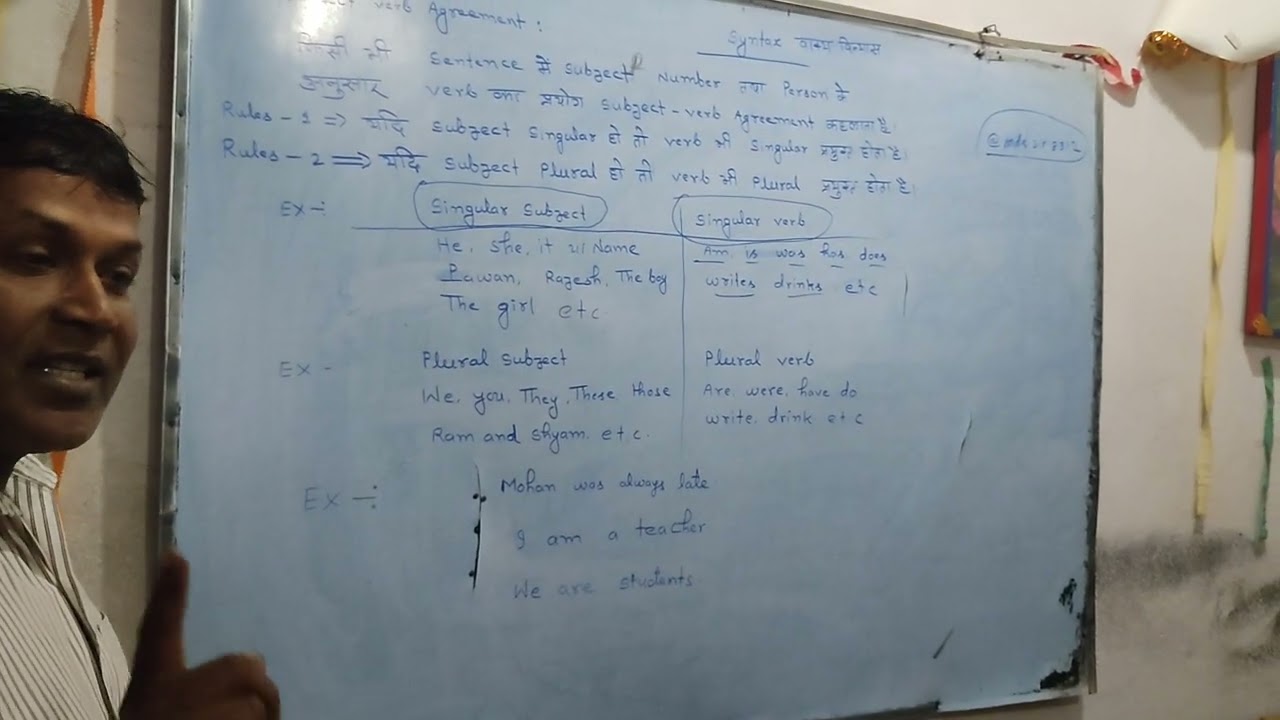 verb Agreement :
Syntax वाक्य विन्यास
किसी भी Sentence में subject Number तथा Person के
अनुसार verb का प्रयोग subject-verb Agreement कहलाता है।
Rules - 1 ⇒ यदि subject singular हो तो verb भी singular प्रयुक्त होता है।
Rules - 2 ⇒ यदि subject Plural हो तो verb भी Plural प्रयुक्त होता है।
Ex -: Singular Subject Singular verb
He, She, it या Name Am is was has does
Pawan, Rajesh, The boy writes drinks etc
The girl etc
Ex - Plural subject Plural verb
We, you, They, These those Are, were, have do
Ram and Shyam, etc. write, drink etc
Ex -: Mohan was always late
I am a teacher
We are students.